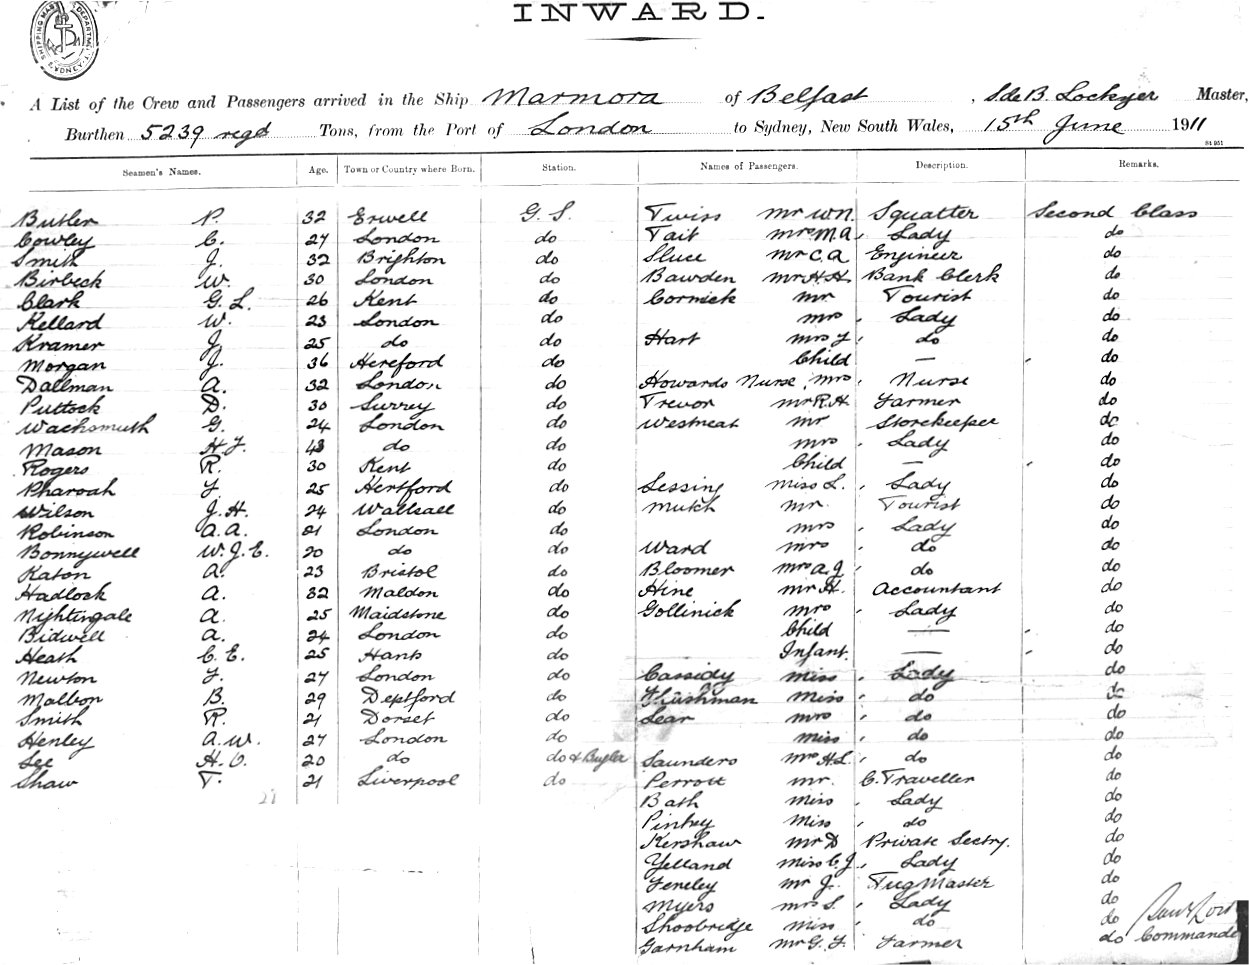 SHIPPING MASTER'S DEPARTMENT SYDNEY
INWARD.
A List of the Crew and Passengers arrived in the Ship Marmora of Belfast, S. de B. Lockyer Master,
Burthen 5239 regd Tons, from the Port of London to Sydney, New South Wales, 15th June 1911
St 951
Seamen's Names. Age. Town or Country where Born. Station. Names of Passengers. Description. Remarks.
Butler P. 32 Erwell G. S. Twiss Mr W.N. Squatter Second Class
Cowley C. 27 London do Tait Mrs M.A. Lady do
Smith J. 32 Brighton do Sluce Mr C.A. Engineer do
Birbeck W. 30 London do Bawden Mr H.H. Bank Clerk do
Clark G. L. 26 Kent do Cormick Mr Tourist do
Kellard W. 23 London do Mrs Lady do
Kramer J. 25 do do Hart Mrs J. do do
Morgan J. 36 Hereford do Child — do
Dallman A. 32 London do Howards Nurse, Mrs Nurse do
Puttock D. 30 Surrey do Trevor Mr R.H. Farmer do
Wachsmuth G. 24 London do Westneat Mr Storekeeper do
Mason H.J. 43 do do Mrs Lady do
Rogers R. 30 Kent do Child — do
Pharoah J. 25 Hertford do Lessing Miss L. Lady do
Wilson J.H. 24 Wallsall do Mutch Mr. Tourist do
Robinson A.A. 21 London do Mrs Lady do
Bonnywell W.J.E. 20 do do Ward Mrs do do
Katon A. 23 Bristol do Bloomer Mrs A.J. do do
Hadlock A. 32 Maldon do Hine Mr H. Accountant do
Nightingale A. 25 Maidstone do Gollinick Mrs Lady do
Bidwell A. 24 London do Child — do
Heath C. E. 25 Hants do Infant. — do
Newton F. 27 London do Cassidy Miss Lady do
Malbon B. 29 Deptford do Flushman Miss do do
Smith R. 21 Dorset do Lear Mrs do do
Henley A.W. 27 London do Miss do do
Lee H.C. 20 do do & Bugler Saunders Mrs H.L. do do
Shaw T. 21 Liverpool do Perrott Mr. C. Traveller do
28 Bath Miss Lady do
Pinhey Miss do do
Kershaw Mr D Private Sectry. do
Yelland Miss C.J. Lady do
Feneley Mr J. Tug Master do
Myers Mrs S. Lady do
Shoobridge Miss do do
Garnham Mr G. F. Farmer do Commander